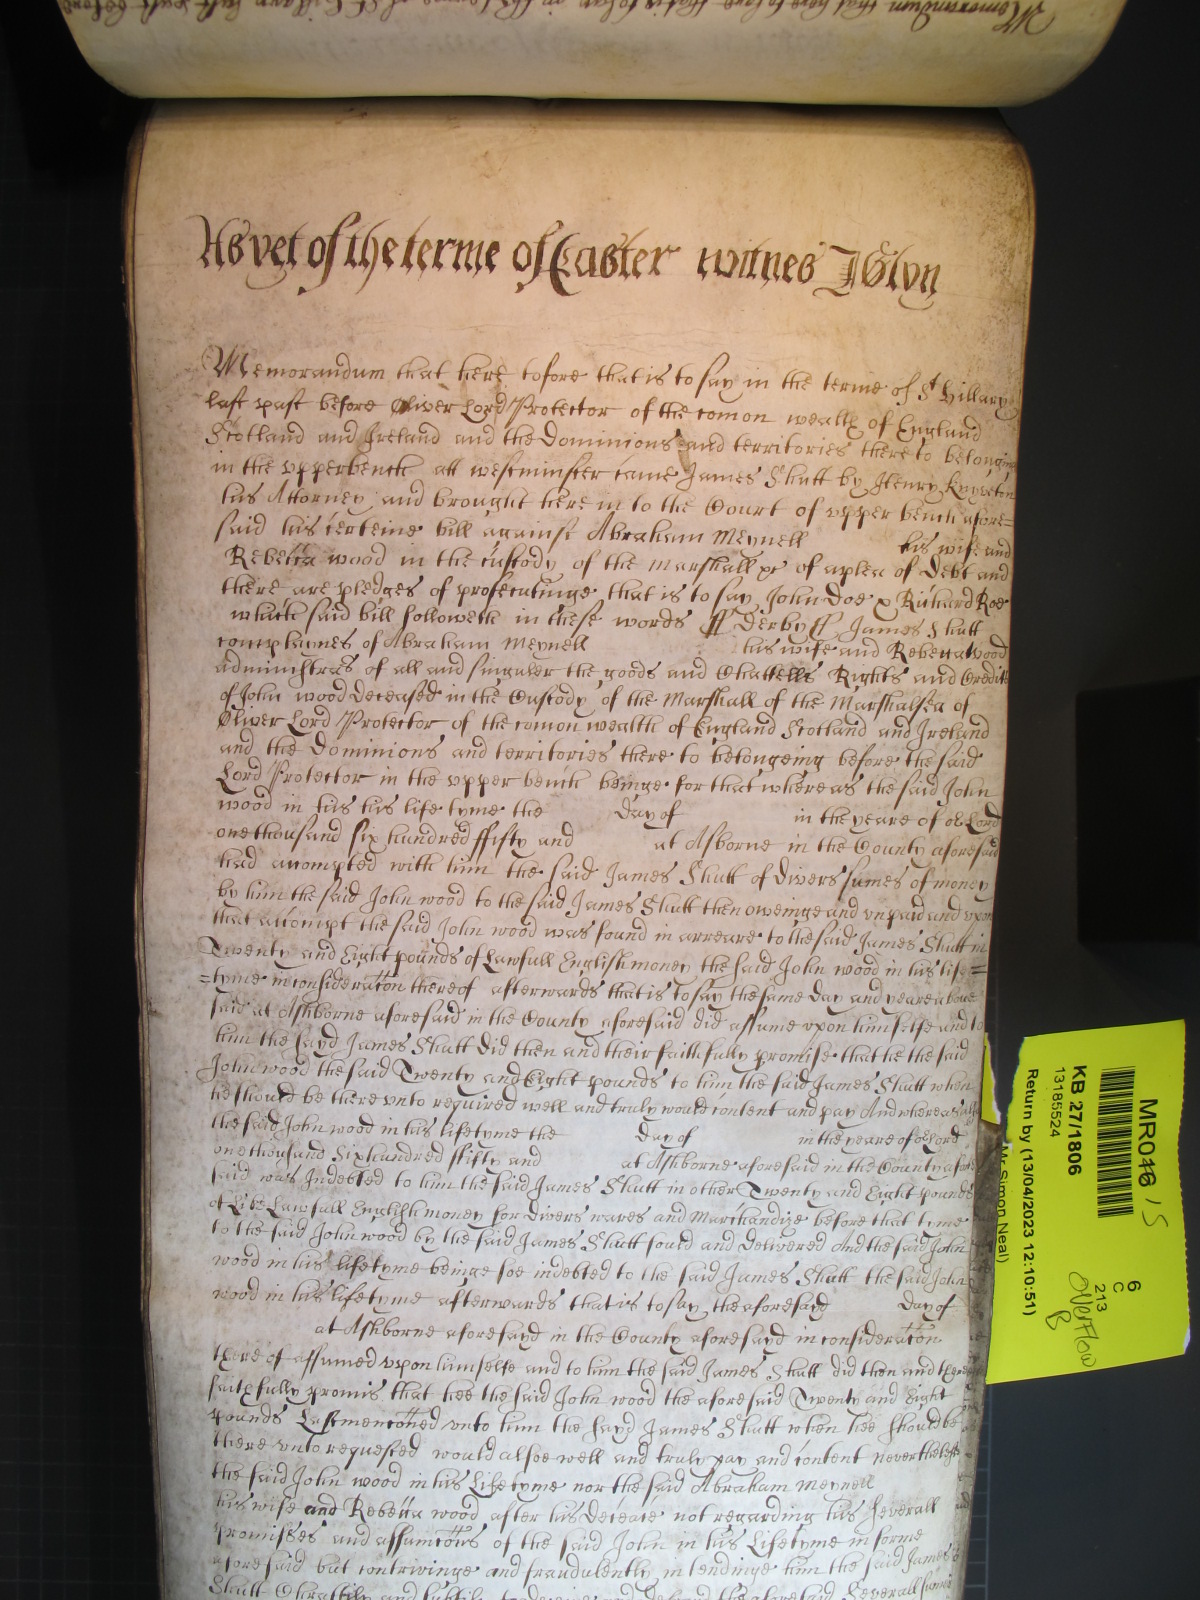 As yet of the terme of Easter witnes J Glyn
Memorandum that here tofore that is to say in the terme of St Hillary
last past before Oliver Lord Protector of the comon wealth of England
Scotland and Ireland and the Dominions and territories there to belonging
in the upperbench att westminster came James Shutt by Henry Knyveton
his Attorney and brought here in to the Court of upper bench afore=
said his certeine bill against Abraham Meynell his wife and
Rebecca wood in the custody of the marshall &c of a plea of Debt and
there are pledges of prosecutinge that is to say John Doe & Richard Roe
which said bill followeth in these words ss Derby ss James Shutt
complaines of Abraham Meynell his wife and Rebecca wood
administrars of all and singuler the goods and Chattells Rights and Creditts
of John wood deceased in the Custody of the Marshall of the Marshalsea of
Oliver Lord Protector of the comon wealth of England Scotland and Ireland
and the Dominions and territories there to belongeing before the said
Lord Protector in the upper bench beinge for that whereas the said John
wood in his his life tyme the day of in the yeare of our Lord
one thousand six hundred ffifty and at Asborne in the County aforesaid
had accompted with him the said James Shutt of divers sumes of money
by him the said John wood to the said James Shutt then oweinge and unpaid and upon
that accompt the said John wood was found in arreare to the said James Shutt in
Twenty and Eight pounds of Lawfull English money the said John wood in his life=
=tyme in consideracon thereof afterwards that is to say the same day and yeare above
said at Ashborne aforesaid in the County aforesaid did assume upon himselfe and to
him the sayd James Shutt did then and their faithfully promise that he the said
John wood the said Twenty and Eight pounds to him the said James Shutt when
he should be there unto required well and truly would content and pay And whereas
the said John wood in his lifetyme the day of in the yeare of our Lord
one thousand Six hundred ffifty and at Ashborne aforesaid in the County afore
said was Indebted to him the said James Shutt in other Twenty and Eight pounds
of Like Lawfull English money for divers wares and Marchandize before that tyme
to the said John wood by the said James Shutt sould and delivered And the said John
wood in his lifetyme beinge soe indebted to the said James Shutt the said John
wood in his lifetyme afterwards that is to say the aforesayd day of
at Ashborne aforesayd in the County aforesayd in consideracon
there of assumed upon himselfe and to him the said James Shutt did then and there
faithfully promis that hee the said John wood the aforesaid Twenty and Eight
pounds Last menconed unto him the sayd James Shutt when hee should be
there unto requested would alsoe well and truly pay and content neverthelesse
the said John wood in his Life tyme nor the said Abraham Meynell
his wife and Rebecca wood after his decease not regarding his severall
promisses and assumcons of the said John in his Lifetyme in forme
aforesaid but contrivinge and fraudulently intendinge him the said James
Shutt Craftily and
MR016 / 15
KB 27/1806
13185524
Return by (13/04/2023 12:10:51)
Mr Simon Neal)
6
C
213
Overflow
B